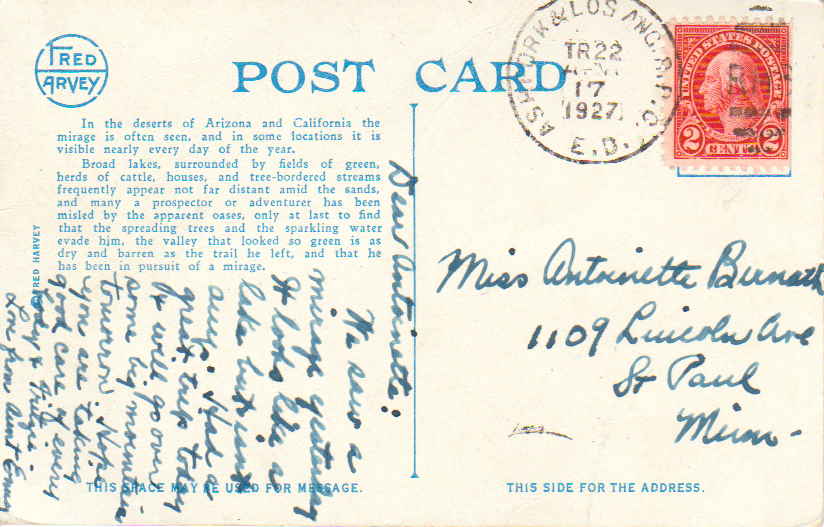 FRED
HARVEY
POST CARD
In the deserts of Arizona and California the
mirage is often seen, and in some locations it is
visible nearly every day of the year.
Broad lakes, surrounded by fields of green,
herds of cattle, houses, and tree-bordered streams
frequently appear not far distant amid the sands,
and many a prospector or adventurer has been
misled by the apparent oases, only at last to find
that the spreading trees and the sparkling water
evade him, the valley that looked so green is as
dry and barren as the trail he left, and that he
has been in pursuit of a mirage.
FRED HARVEY
Dear Antoinette:
We saw a
mirage yesterday
It looks like a
lake but isn't
any. Had a
great trip today
& will go over
some big mountain
tomorrow. Hope
you are taking
good care of every
body &
Love from Aunt Emma
THIS SPACE MAY BE USED FOR MESSAGE.
ASH FORK & LOS ANG. R.P.O.
TR 22
17
1927
E.D.
UNITED STATES POSTAGE
2 CENTS 2
Miss Antoinette Bernath
1109 Lincoln Ave
St Paul
Minn-
THIS SIDE FOR THE ADDRESS.